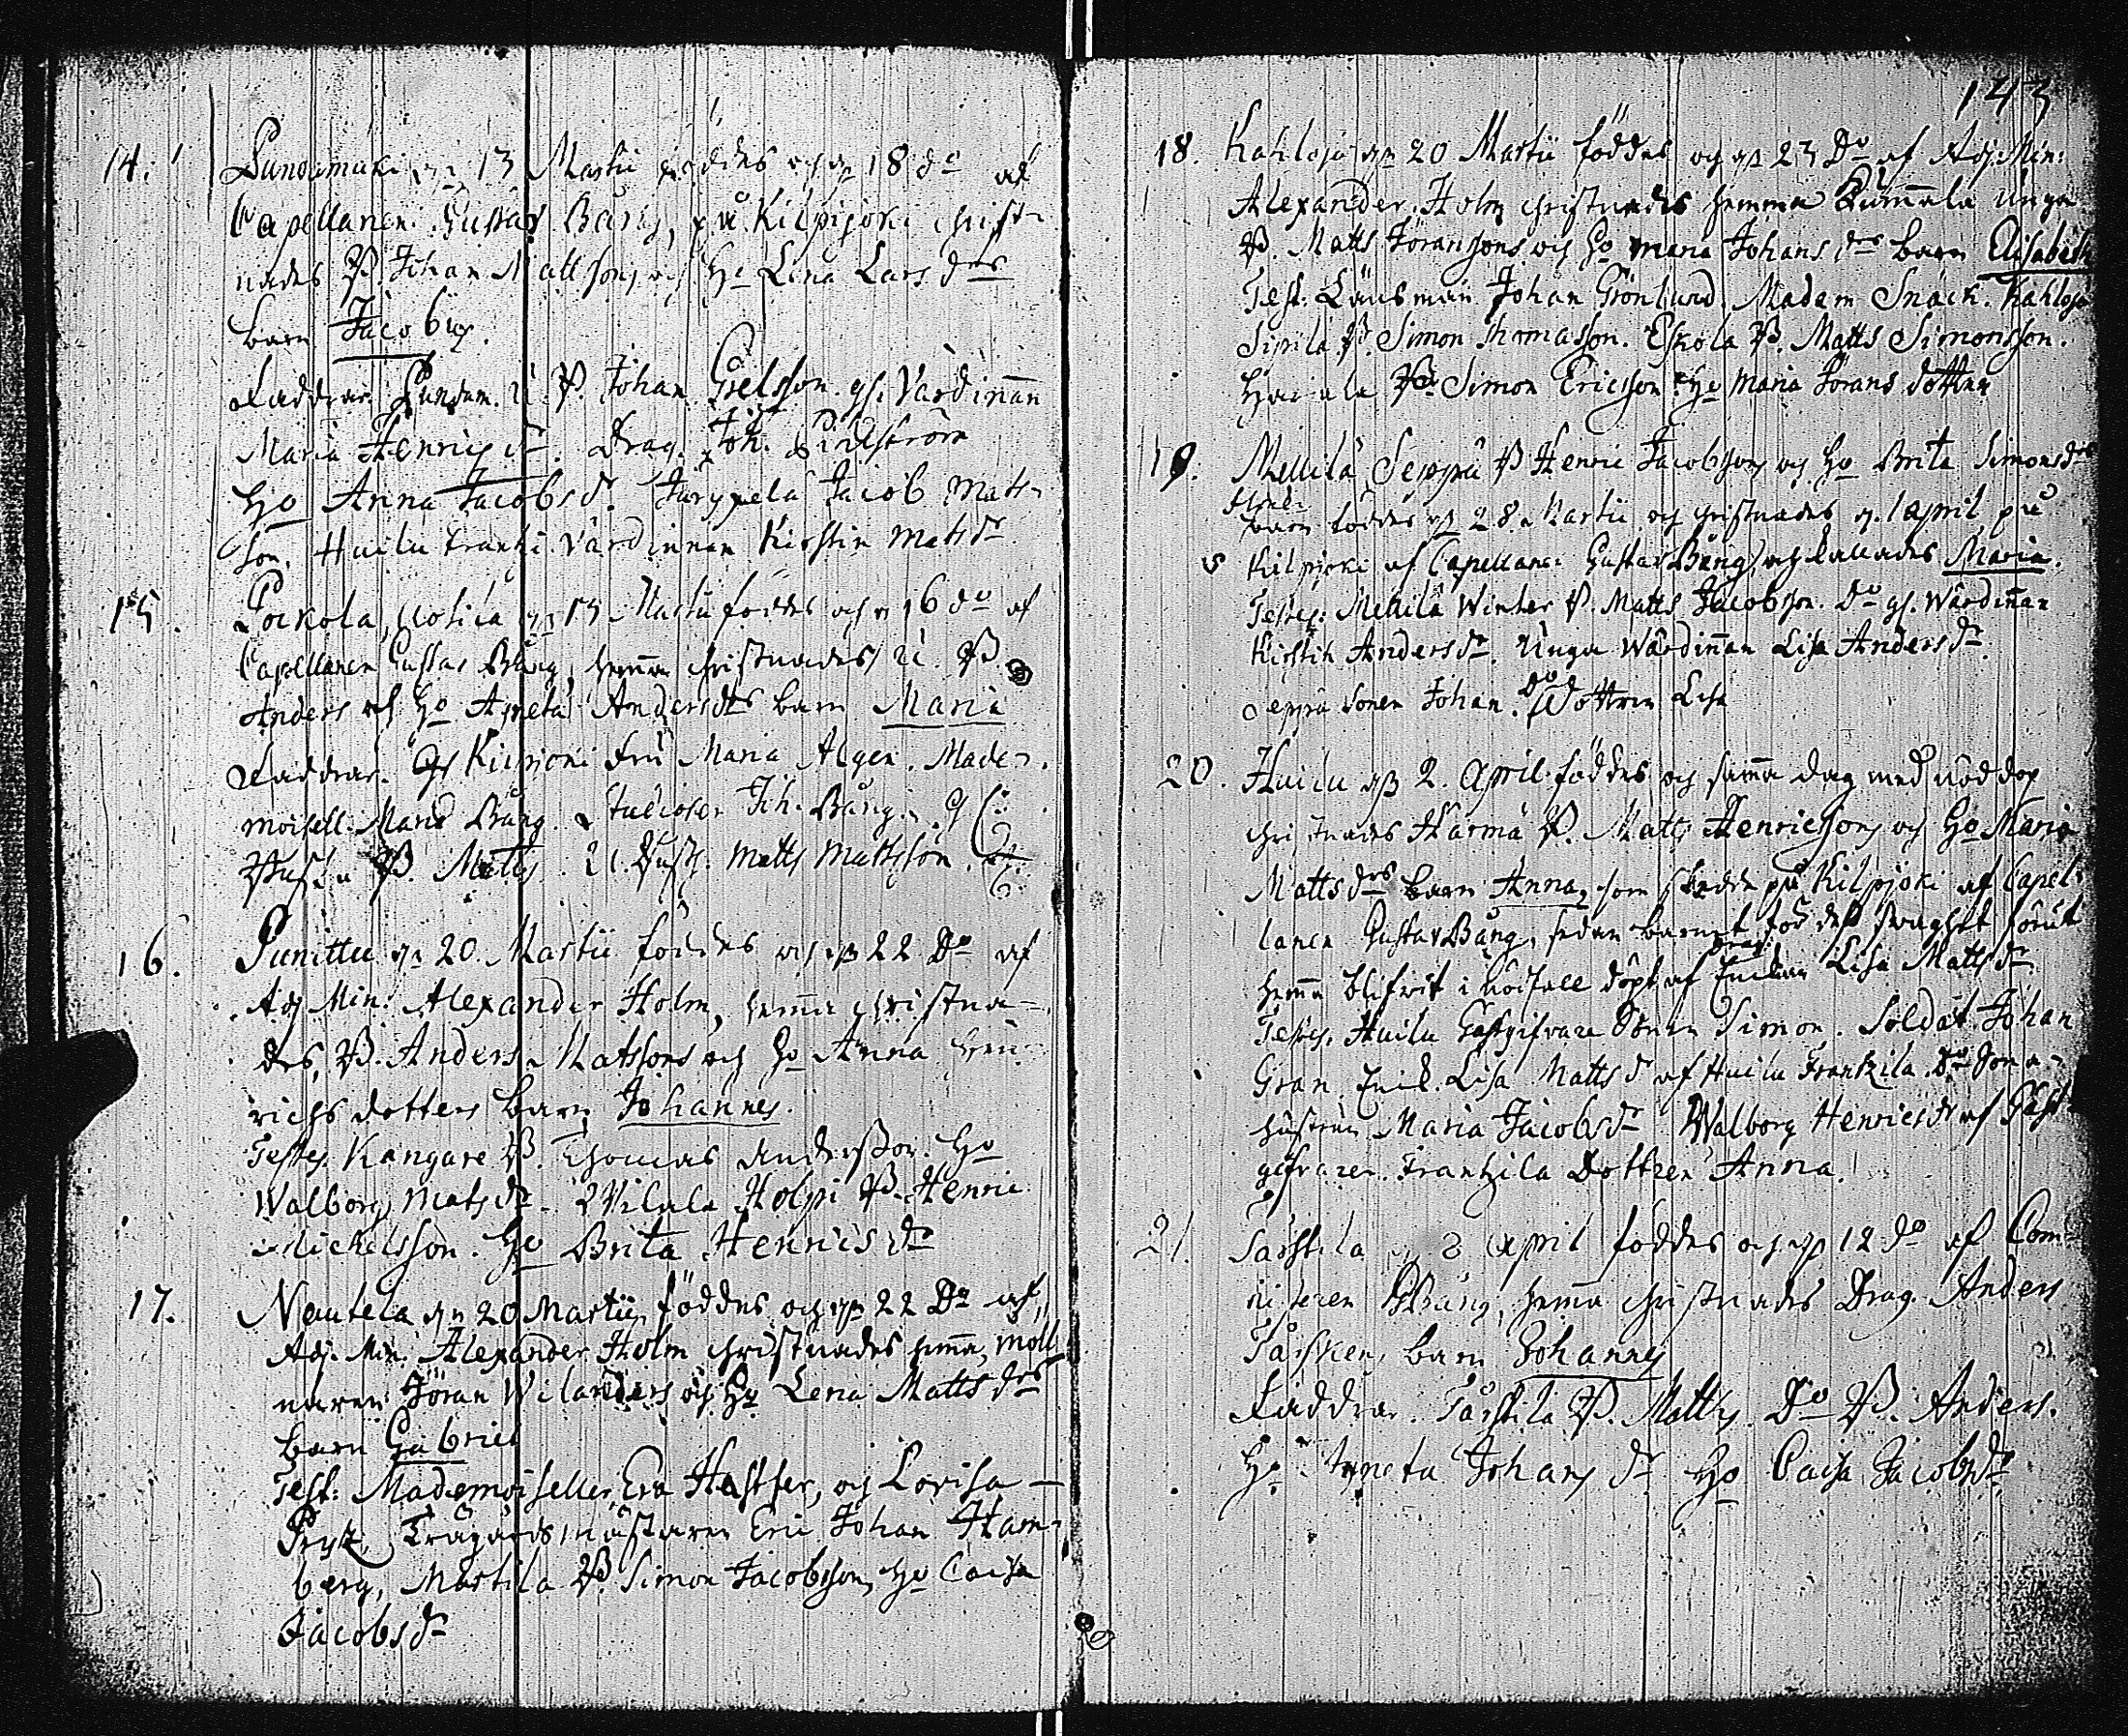 14. Pundamäki 13 Martii föddes och 18 do af
Capellanen Gustav Bång, på Kilpijoki christ-
nades B. Johan Mattsons och Ho Lena Lars drs
barn Jacobus.
Faddrar. B. Johan Grelsson. gl. Värdinnan
Maria Henrics dr. Drag. Joh. Lindström
Ho Anna Jacobs dr. Jacob Matts-
son. Huilu Frantzi. Värdinnan Kirstin Mats dr
15. 13 Martii föddes och 16 do af
Capellanen Gustav Bång, hemma christnades B.
Anders och Ho Agneta Andersdrs barn Maria
Faddrar. Kilpijoki Fru Maria Algen. Made-
moisell. Maria Bång. Studiosen Joh. Bång.
B. Matts Matts Mattsson
16. Punittu 20 Martii föddes och 22 Do af
Adj. Min. Alexander Holm, hemma christna-
des, B. Anders Mattsons och Ho Anna Hen-
richs dotters barn Johannes.
Testes. Kangare B. Thomas Andersson. Ho
Walborg Mats dr. Holpi B. Henric
Mickelsson. Ho Brita Henrics dr
17. Nautela 20 Martii föddes och 22 Do af
Adj. Min. Alexander Holm christnades hemma, Möll-
naren Jöran Wilanders och Ho Lena Matts drs
barn Gabriel
Test: Mademoiseller Eva Hastfer, och Lovisa
Prytz, Trägårdsmästaren Eric Johan Ham-
berg, Mastila B. Simon Jacobsson, Ho Caisa
Jacobs dr
143
18. Kahloja 20 Martii föddes och 23 Do af Adj. Min:
Alexander Holm christnades hemma Unga
B. Matts Jöranssons och Ho Maria Johans drs barn Elisabeth
Test: Länsman Johan Grönlund. Madam Snäck. Kahloja
Sipilä B. Simon Thomasson. Eskola B. Matts Simonsson.
B. Simon Ericsson Ho Maria Jörans dotter
19. Mellilä Seppä B Henric Jacobssons och Ho Brita Simonsdrs
barn föddes 28 Martii och christnades 1 April på
Kilpijoki af Capellanen Gustav Bång och kallades Maria.
Testes: Mellilä Winter B. Matts Jacobsson. Do gl. Wärdinnan
Kirstin Anders dr. Unga Wärdinnan Lisa Anders dr.
Seppä Sonen Johan. Do Dottren Lisa
20. Huilu 2. April föddes och samma dag med nöddop
christnades Härmä B. Matts Henricssons och Ho Maria
Matts drs barn Anna, som skedde på Kilpijoki af Capel-
lanen Gustav Bång, sedan barnet för dess svaghet förut
hemma blifvit i nödfall döpt af Enckan Lisa Matts dr
Testes, Huilu Gästgifvare Sonen Simon. Soldat Johan
Gran, Enck. Lisa Matts dr af Huilu Frantzila. Do Sona-
hustrun Maria Jacobs dr Walborg Henrics dr af Gäst-
gifvaren. Frantzila Dottren Anna.
21. Tårstila 8 April föddes och 12 do af Com-
ministeren Bång, hemma christnades Drag. Anders
Tårsken, barn Johannes
Faddrar. Tårstila B. Matts. Do B. Anders.
Ho Agneta Johans dr Ho Caisa Jacobs dr